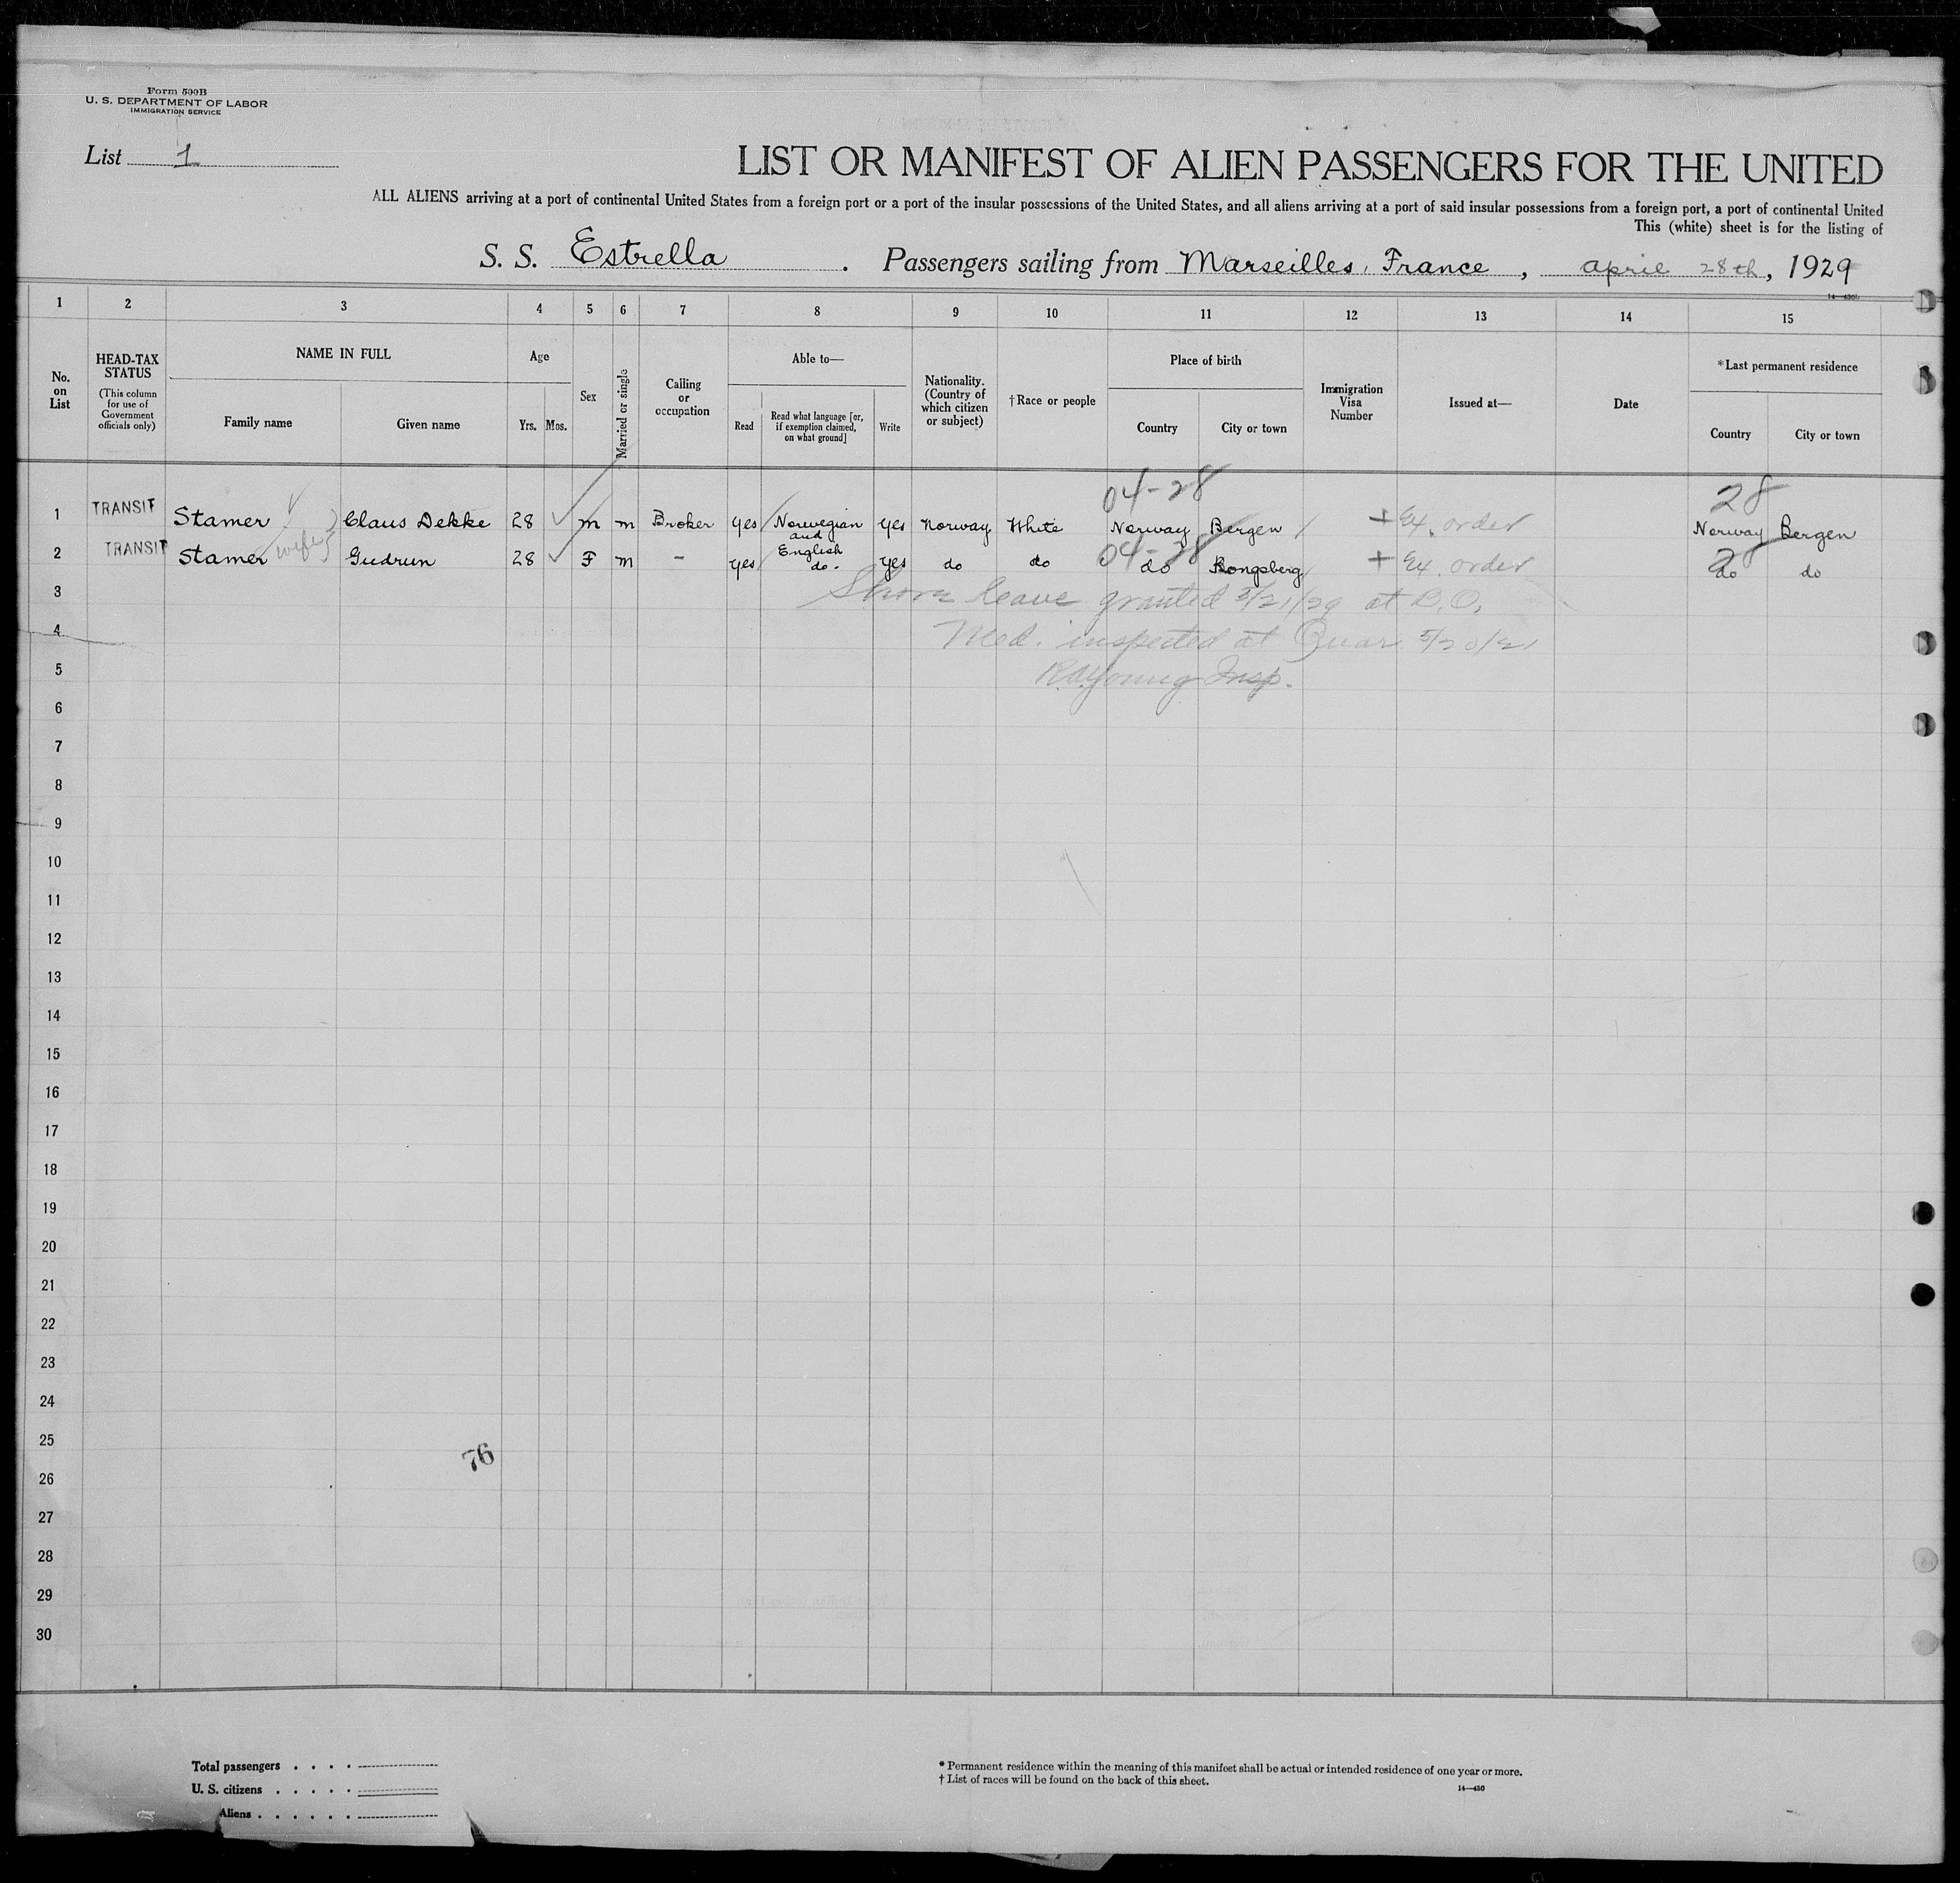 Form 500B
U. S. DEPARTMENT OF LABOR
IMMIGRATION SERVICE
List 1
LIST OR MANIFEST OF ALIEN PASSENGERS FOR THE UNITED
ALL ALIENS arriving at a port of continental United States from a foreign port or a port of the insular possessions of the United States, and all aliens arriving at a port of said insular possessions from a foreign port, a port of continental United
This (white) sheet is for the listing of
S. S. Estrella . Passengers sailing from Marseilles, France , april 28th, 1929
1 2 3 4 5 6 7 8 9 10 11 12 13 14 15
No. on List
HEAD-TAX STATUS
(This column for use of Government officials only)
NAME IN FULL
Family name Given name
Age
Yrs. Mos.
Sex
Married or single
Calling or occupation
Able to—
Read
Read what language [or, if exemption claimed, on what ground]
Write
Nationality. (Country of which citizen or subject)
†Race or people
Place of birth
Country City or town
Immigration Visa Number
Issued at—
Date
*Last permanent residence
Country City or town
04-28 28
1 TRANSIT Stamer Claus Dekke 28 m m Broker Yes Norwegian and English Yes Norway White Norway Bergen + Ex. order Norway Bergen
04-28 28
2 TRANSIT Stamer wife Gudrun 28 F m - Yes do. Yes do do do Kongsberg + Ex. order do do
3 Shore leave granted at
4 Med. inspected at Quar.
5 Young Insp.
6
7
8
9
10
11
12
13
14
15
16
17
18
19
20
21
22
23
24
25
76
26
27
28
29
30
Total passengers . . . .
U. S. citizens . . . . .
Aliens . . . . . .
* Permanent residence within the meaning of this manifest shall be actual or intended residence of one year or more.
† List of races will be found on the back of this sheet.
14—430